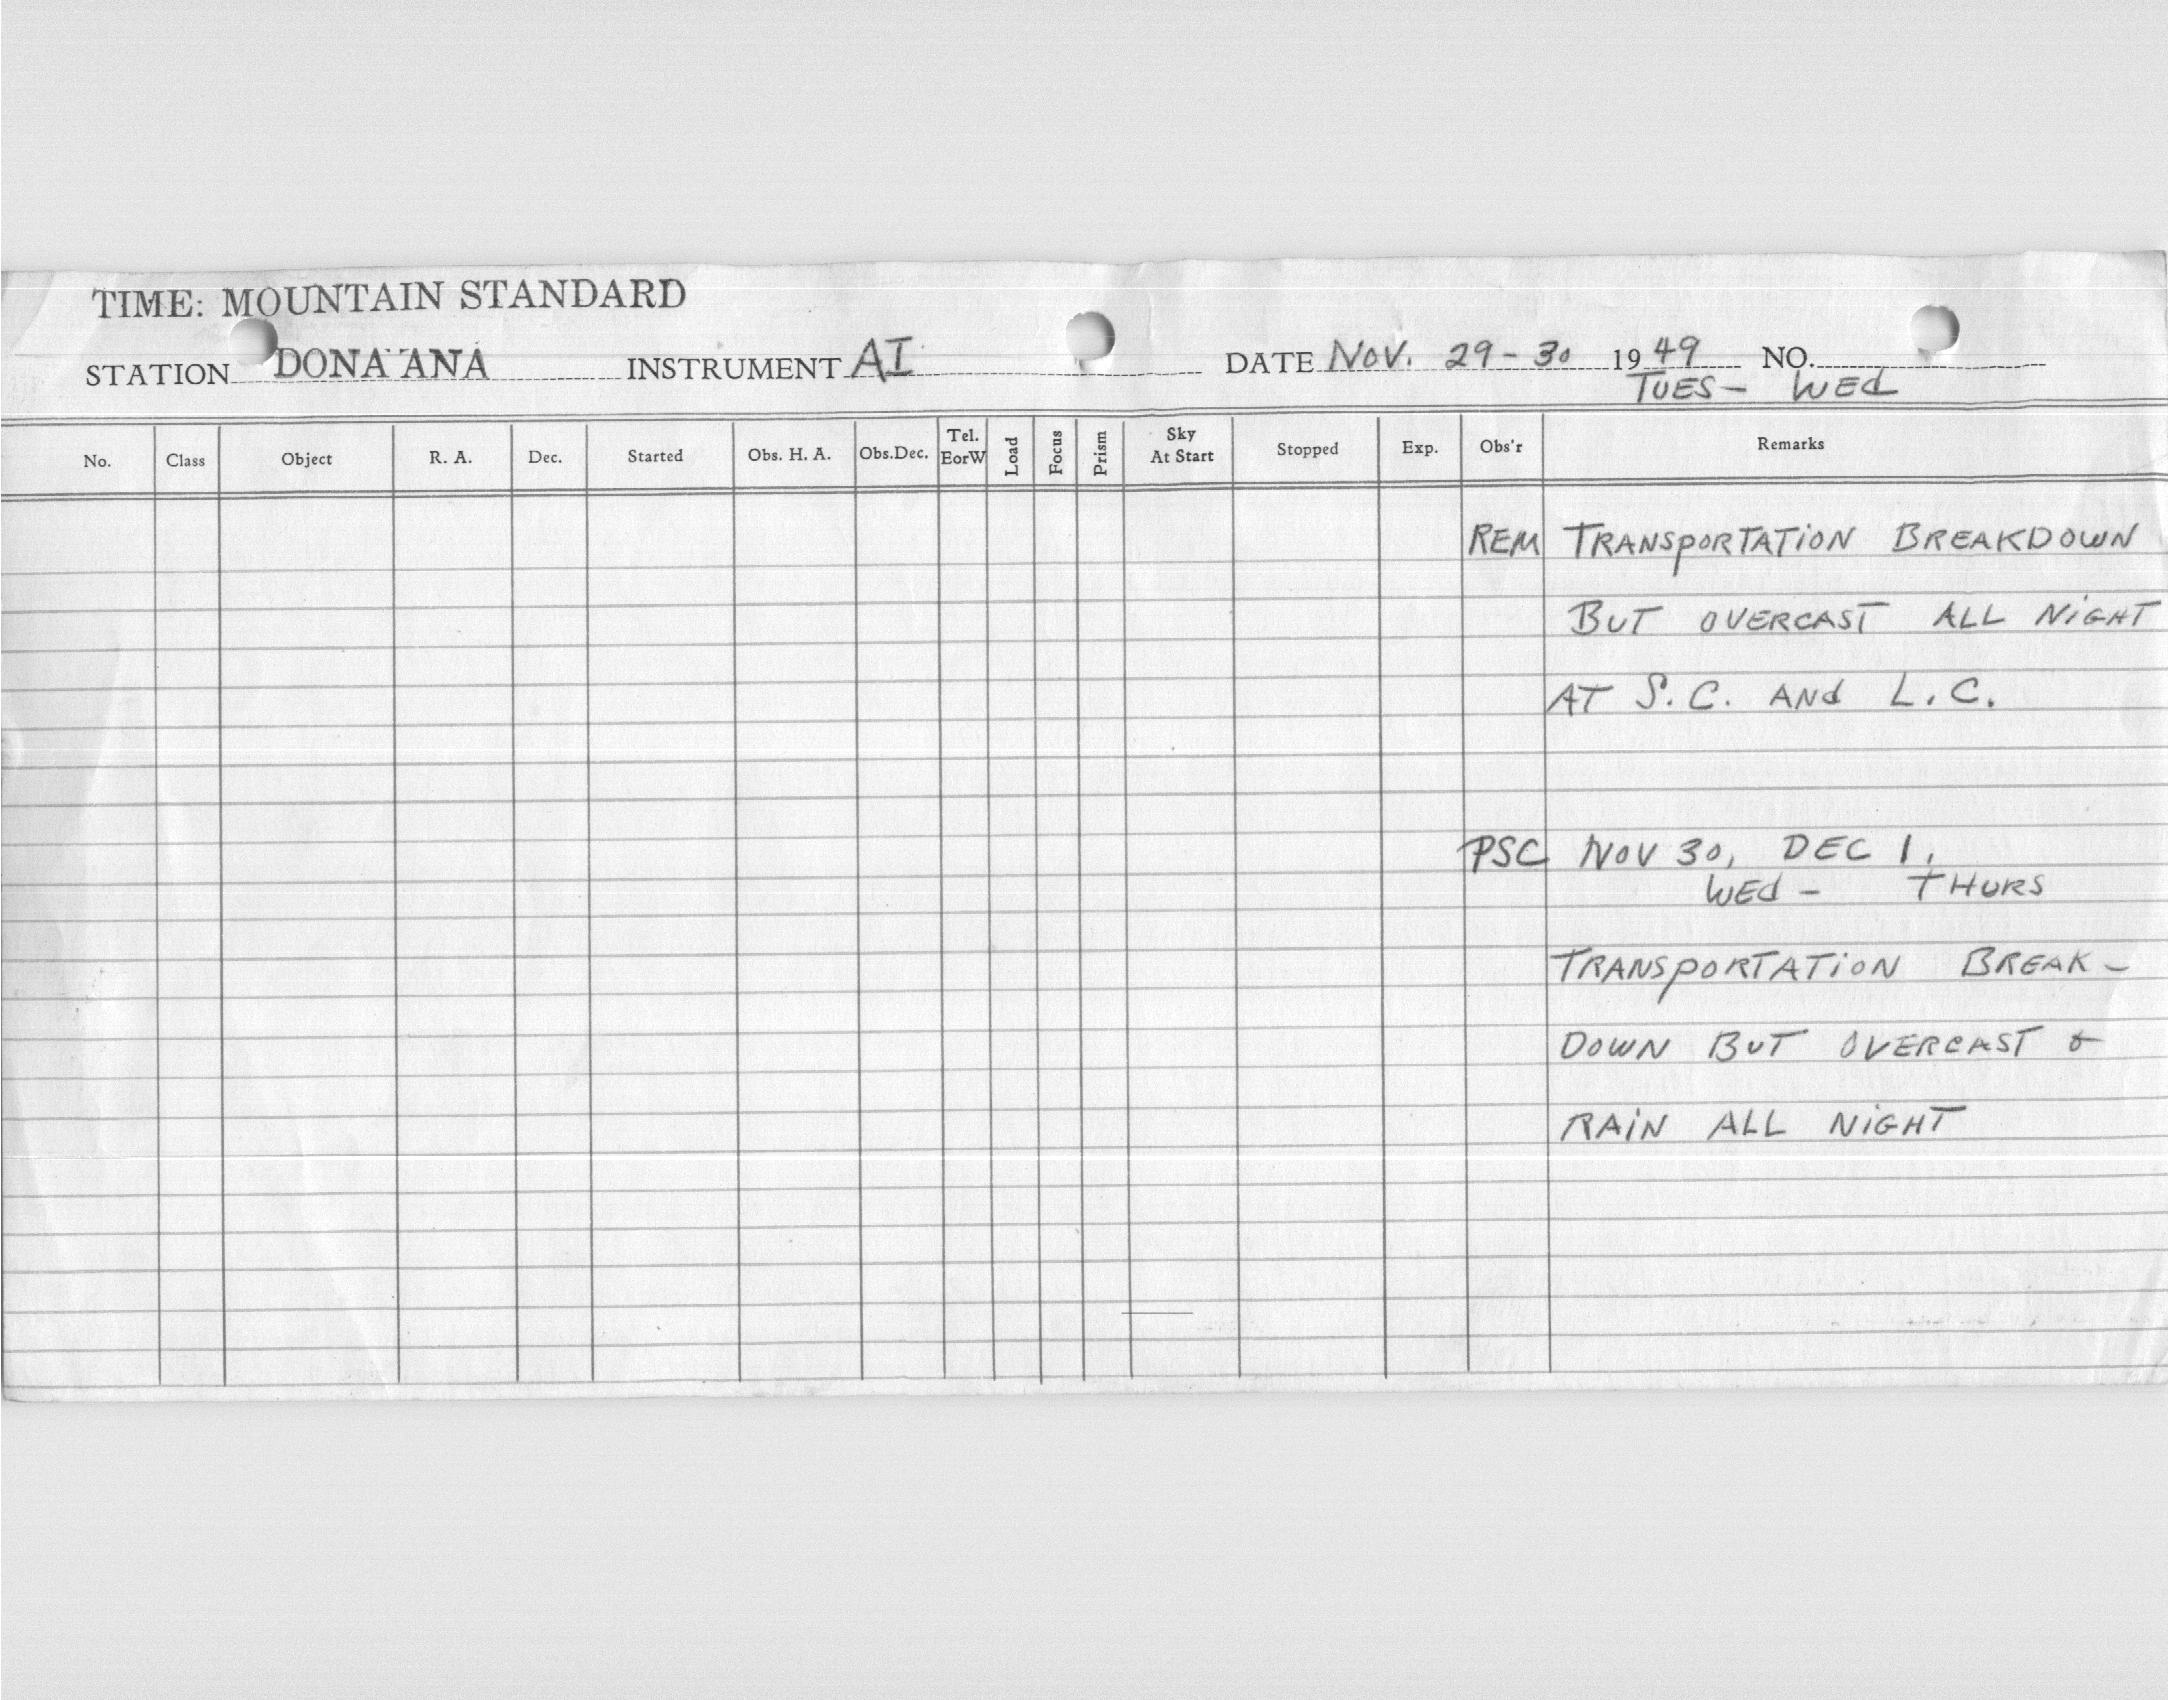 TIME: MOUNTAIN STANDARD
STATION DONA ANA INSTRUMENT AI DATE NOV. 29-30 1949 NO.
TUES- WEd
No. Class Object R. A. Dec. Started Obs. H. A. Obs.Dec. Tel. EorW Load Focus Prism Sky At Start Stopped Exp. Obs'r Remarks
REM TRANSPORTATiON BREAKDOWN
BUT OVERCAST ALL NiGHT
AT S.C. ANd L.C.
PSC NOV 30, DEC 1,
WEd - THURS
TRANSPORTATiON BREAK-
DOWN BUT OVERCAST &
RAiN ALL NiGHT